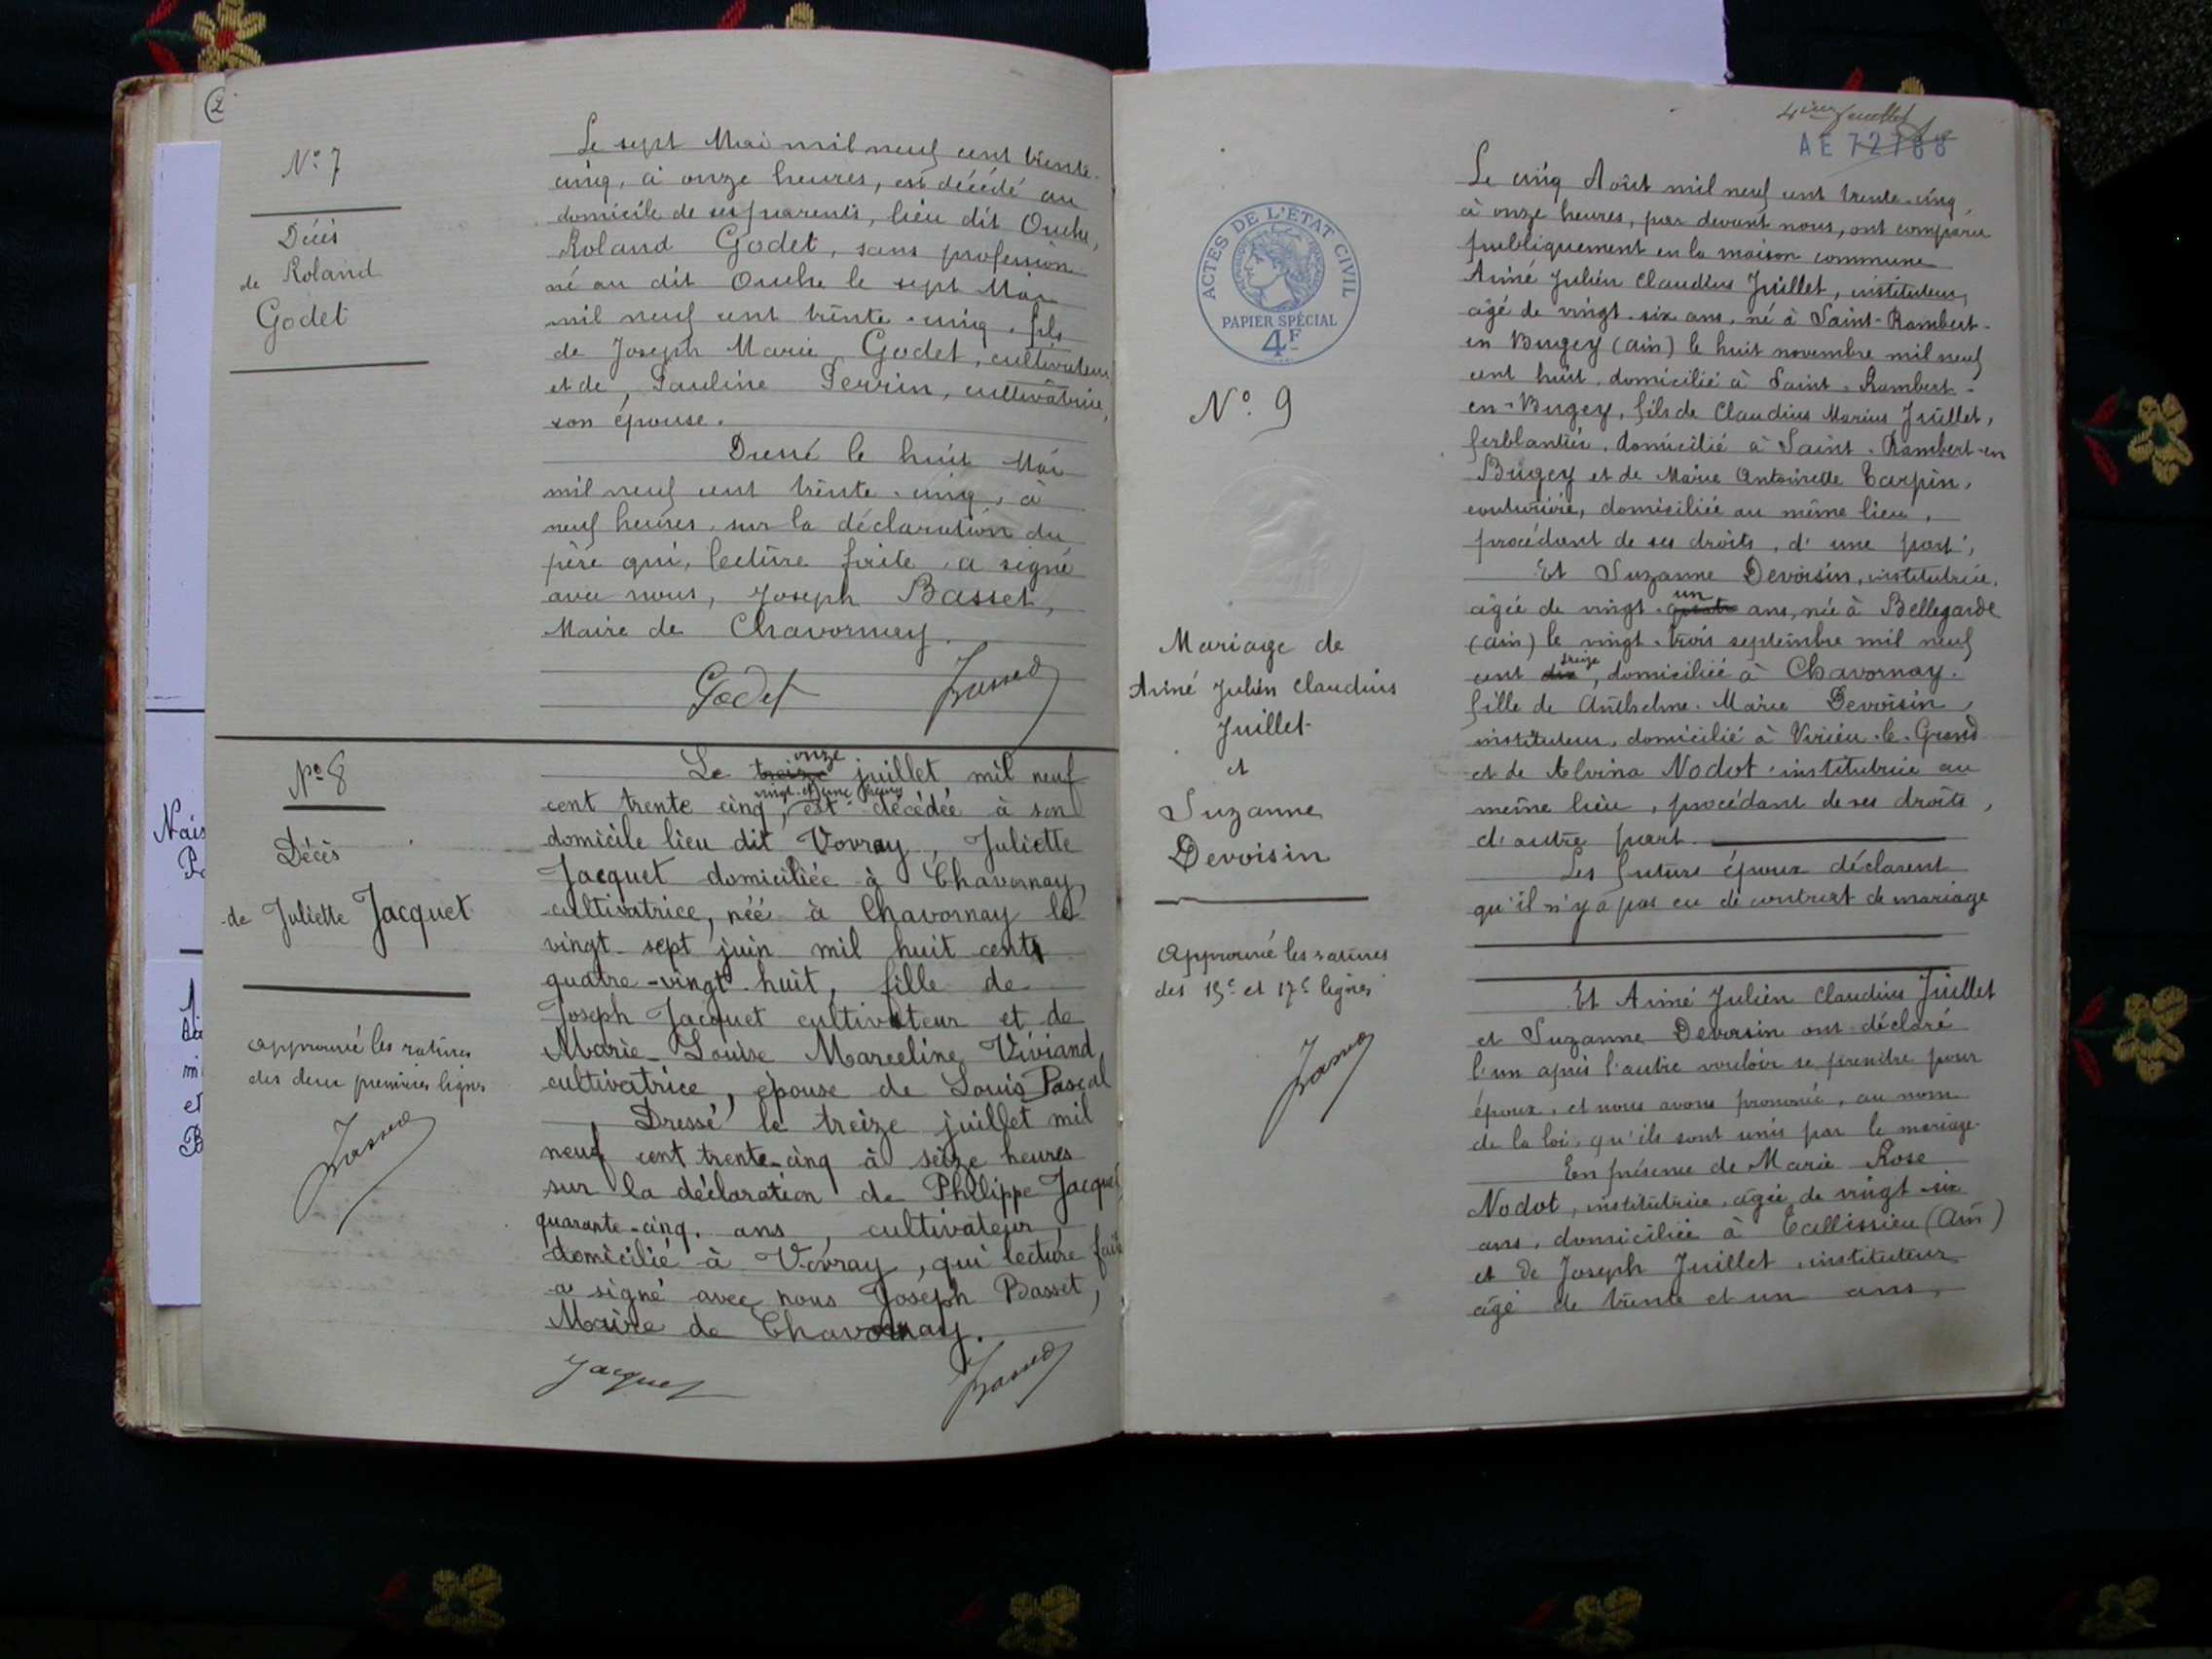 2
N° 7
Décès
de Roland
Godet
Le sept Mai mil neuf cent trente-
cinq, à onze heures, est décédé au
domicile de ses parents, lieu dit Ouche,
Roland Godet, sans profession
né au dit Ouche le sept Mai
mil neuf cent trente-cinq, fils
de Joseph Marie Godet, cultivateur
et de, Pauline Perrin, cultivatrice,
son épouse.
Dressé le huit Mai
mil neuf cent trente-cinq, à
neuf heures, sur la déclaration du
père qui, lecture faite, a signé
avec nous, Joseph Basset,
Maire de Chavornay.
Godet Basset
N° 8
Décès
de Juliette Jacquet
approuvé les ratures
des deux premières lignes
Basset
onze
Le treize juillet mil neuf
vingt et une heures
cent trente cinq, est décédée à son
domicile lieu dit Vovray, Juliette
Jacquet domiciliée à Chavornay,
cultivatrice, née à Chavornay le
vingt-sept juin mil huit cent
quatre-vingt-huit, fille de
Joseph Jacquet cultivateur et de
Marie-Louise Marceline Viviand,
cultivatrice, épouse de Louis Pascal
Dressé le treize juillet mil
neuf cent trente-cinq à seize heures
sur la déclaration de Philippe Jacquet
quarante-cinq, ans, cultivateur,
domicilié à Vovray, qui lecture faite
a signé avec nous Joseph Basset,
Maire de Chavornay.
Jacquet Basset
Nais
m
et
B
4ième feuillet
AE 72788
ACTES DE L'ETAT CIVIL
PAPIER SPÉCIAL
4F
N° 9
Mariage de
Aimé Julien Claudius
Juillet
et
Suzanne
Devoisin
Approuvé les ratures
des 15e et 17e lignes
Basset
Le cinq Août mil neuf cent trente-cinq,
à onze heures, par devant nous, ont comparu
publiquement en la maison commune
Aimé Julien Claudius Juillet, instituteur,
âgé de vingt-six ans, né à Saint-Rambert-
en Bugey (Ain) le huit novembre mil neuf
cent huit, domicilié à Saint-Rambert-
en-Bugey, fils de Claudius Marius Juillet,
ferblantier, domicilié à Saint-Rambert-en
Bugey et de Marie Antoinette Carpin,
couturière, domiciliée au même lieu,
procédant de ses droits, d'une part,
Et Suzanne Devoisin, institutrice,
un
âgée de vingt-quatre ans, née à Bellegarde
(Ain) le vingt-trois septembre mil neuf
treize
cent dix, domiciliée à Chavornay.
fille de Anthelme-Marie Devoisin,
instituteur, domicilié à Virieu-le-Grand
et de Alvina Nodot, institutrice au
même lieu, procédant de ses droits,
d'autre part.
Les futurs époux déclarent
qu'il n'y a pas eu de contrat de mariage
Et Aimé Julien Claudius Juillet
et Suzanne Devoisin ont déclaré
l'un après l'autre vouloir se prendre pour
époux, et nous avons prononcé, au nom
de la loi, qu'ils sont unis par le mariage.
En présence de Marie Rose
Nodot, institutrice, âgée de vingt-six
ans, domiciliée à Tallissieu (Ain)
et de Joseph Juillet, instituteur
âgé de trente et un ans,